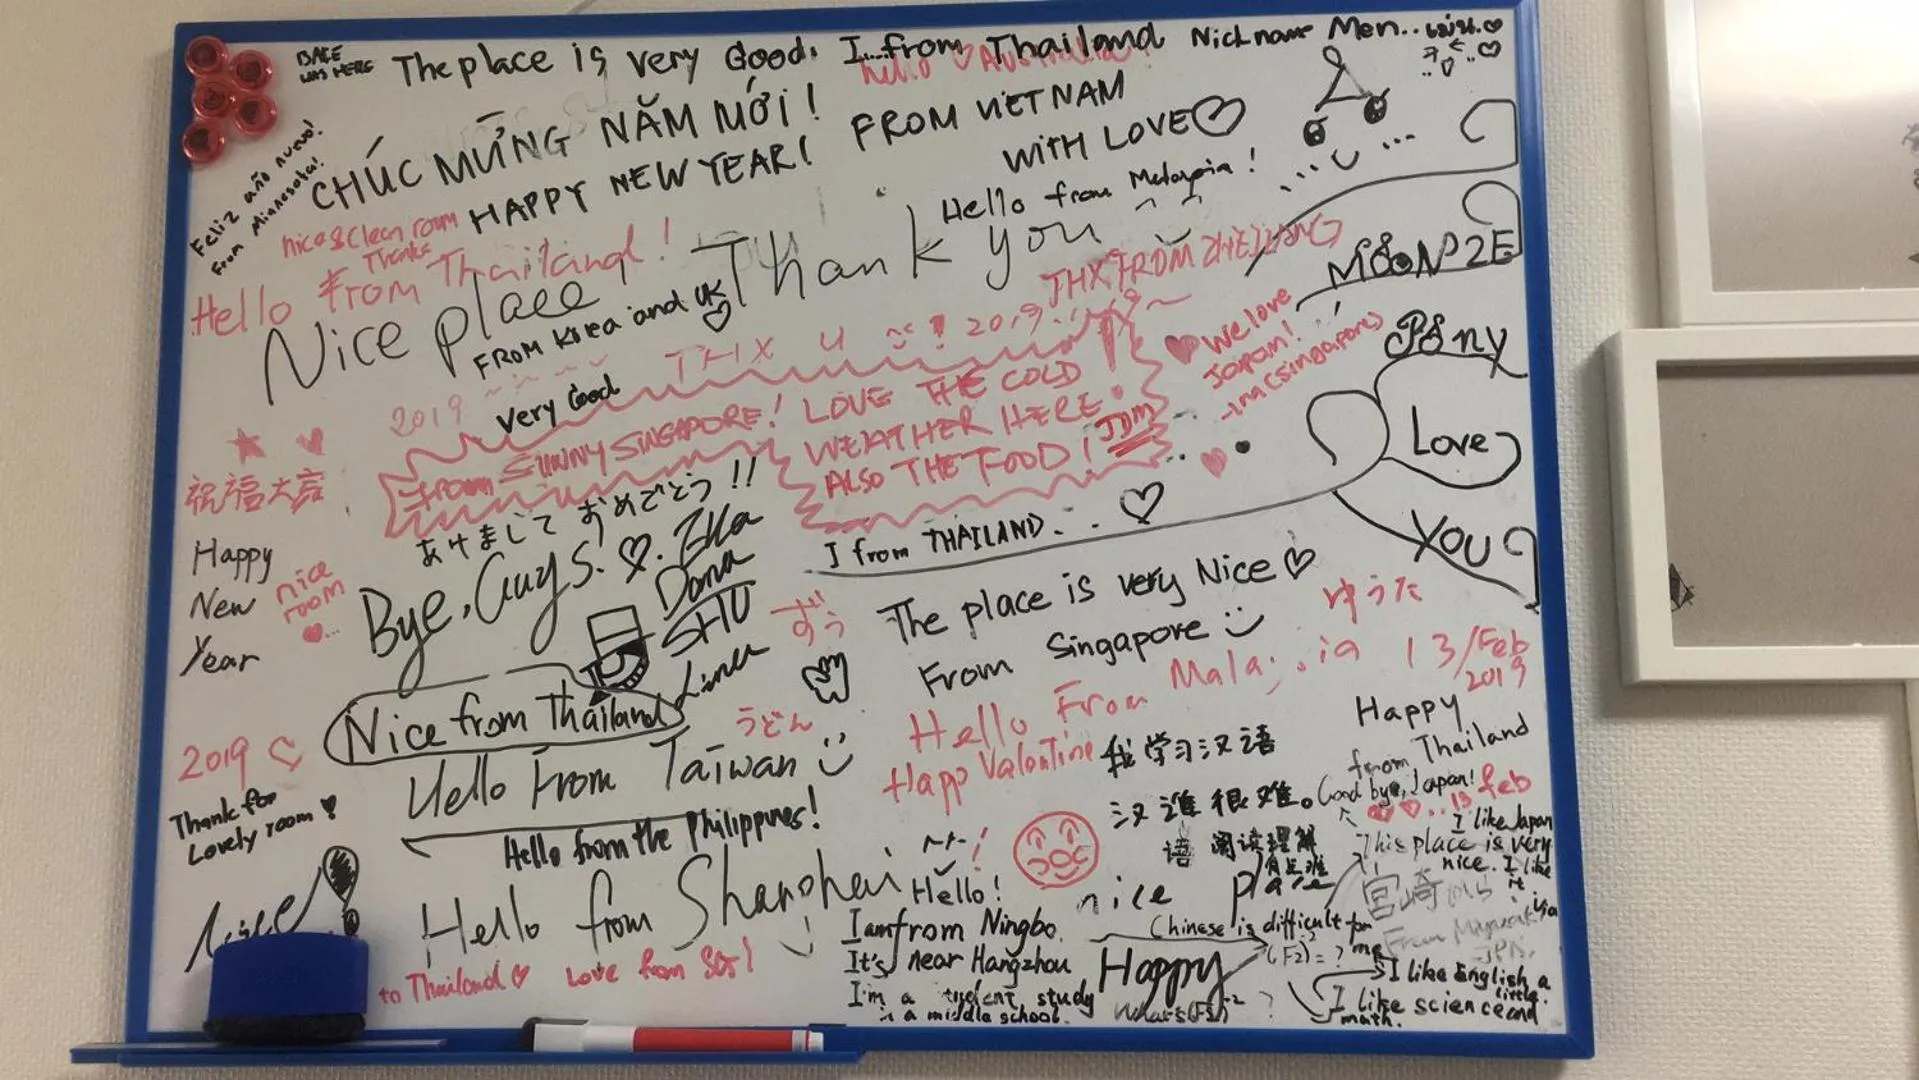 BALE WAS HERE
The place is very Good. I....from Thailand Nickname Men..
hello ♡ Australia
Feliz año nuevo!
from Minnesota!
CHÚC MỪNG NĂM MỚI!
HAPPY NEW YEAR! FROM VIETNAM
WITH LOVE♡
Hello from Malaysia!
nice & clean room
Thanks
Hello from Thailand!
Nice place Thank you
FROM Korea and UK
♡
THX FROM ZHEJIANG
MOON 2E
We love
Japan!
-ina(singapore)
Pony
Love
You
2019
THX U 2019.
Very Good
from SUNNY SINGAPORE! LOVE THE COLD
WEATHER HERE.
ALSO THE FOOD! JDM
祝福大吉
Happy
New
Year
nice
room
♥...
あけまして おめでとう!!
Bye, Guys. ♡.
Dona
SHU
I from THAILAND... ♡
The place is very Nice ♡
From Singapore
ゆうた
Nice from Thailand
うどん
Hello From Malaysia 13/Feb
2019
Happ Valentine
2019 ♡
Hello From Taiwan
Thank for
Lovely room
Hello from the Philippines!
我学习汉语
汉
语
很难。
阅读理解
有点难
Happy
from Thailand
Good bye, Japan!
♥ ♡...13 feb
I like Japan
This place is very
nice. I like
it
nice place
宮崎
Hello from Shanghai
Hello!
I am from Ningbo.
It's near Hangzhou
I'm a student, study
in a middle school.
Chinese is difficult for
me
Happy
I like English a
little.
I like science and
math.
Nice!
to Thailand ♡ Love from